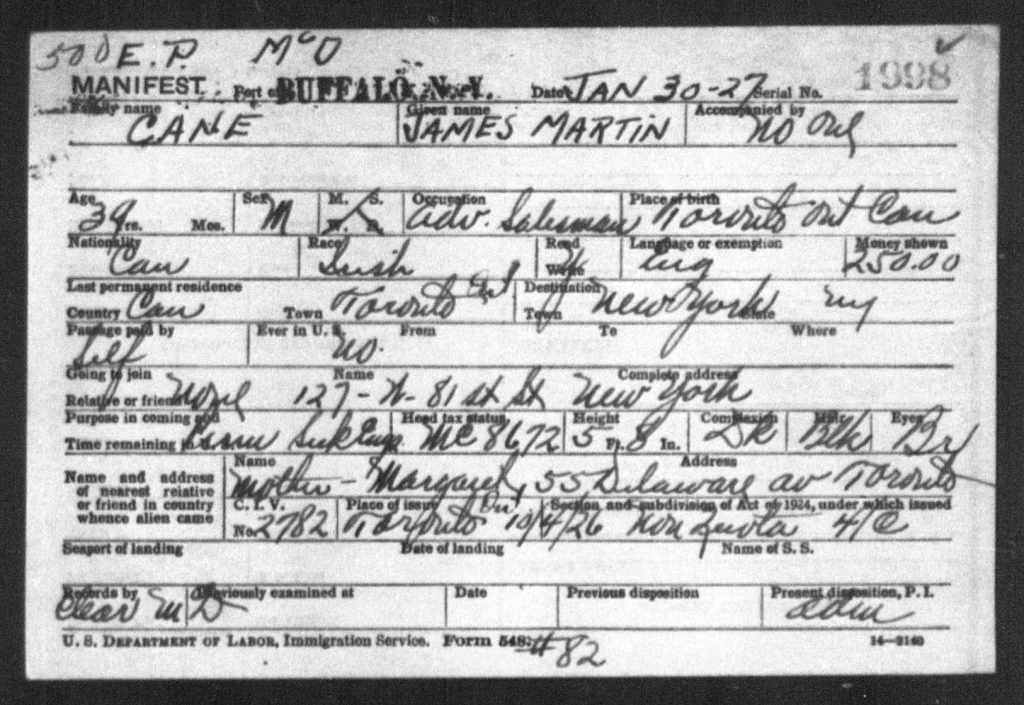 500 E. P. McD
MANIFEST. Port of BUFFALO, N. Y. Date JAN 30-27 Serial No. 1998
Family name Given name Accompanied by
CANE JAMES MARTIN no one
Age Sex M. S. Occupation Place of birth
39 Yrs. Mos. M W. D. adv. Salesman Toronto Ont Can
Nationality Race Read Language or exemption Money shown
Can Irish Write Eng 250.00
Last permanent residence Destination
Country Can Town Toronto Ont Town New York State ny
Passage paid by Ever in U. S. From To Where
Self No.
Going to join Name Complete address
Relative or friend None 127 - W - 81 st St New York
Purpose in coming and Head tax status Height Complexion Hair Eyes
Time remaining Perm Seek Emp MC 8672 5 Ft. 8 In. Dk Blk Br
Name and address of nearest relative or friend in country whence alien came
Name Address
Mother - Margaret, 55 Delaware av Toronto
C. I. V. Place of issue Section and subdivision of Act of 1924, under which issued
No. 2782 Toronto On 10/4/26 Non Quota 4/C
Seaport of landing Date of landing Name of S. S.
Records by Previously examined at Date Previous disposition Present disposition, P. I.
Clear McD adm
U. S. DEPARTMENT OF LABOR, Immigration Service. Form 548. #82 14-2160